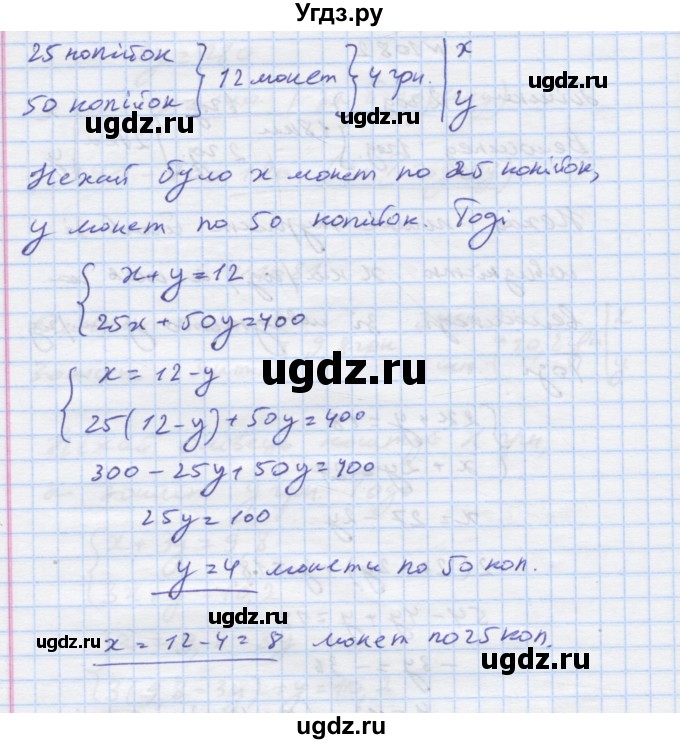 Угдз.ру
25 копійок } 12 монет } 4 грн. | x
50 копійок | y
ugdz.ru ugdz.ru
Нехай було x монет по 25 копійок,
y монет по 50 копійок Тоді
{ x + y = 12
25x + 50y = 400
ugdz.ru
{ x = 12 - y
25(12 - y) + 50y = 400
300 - 25y + 50y = 400
25y = 100
y = 4 монети по 50 коп.
ugdz.ru
ugdz.ru
x = 12 - 4 = 8 монет по 25 коп.
ugdz.ru
ugdz.ru